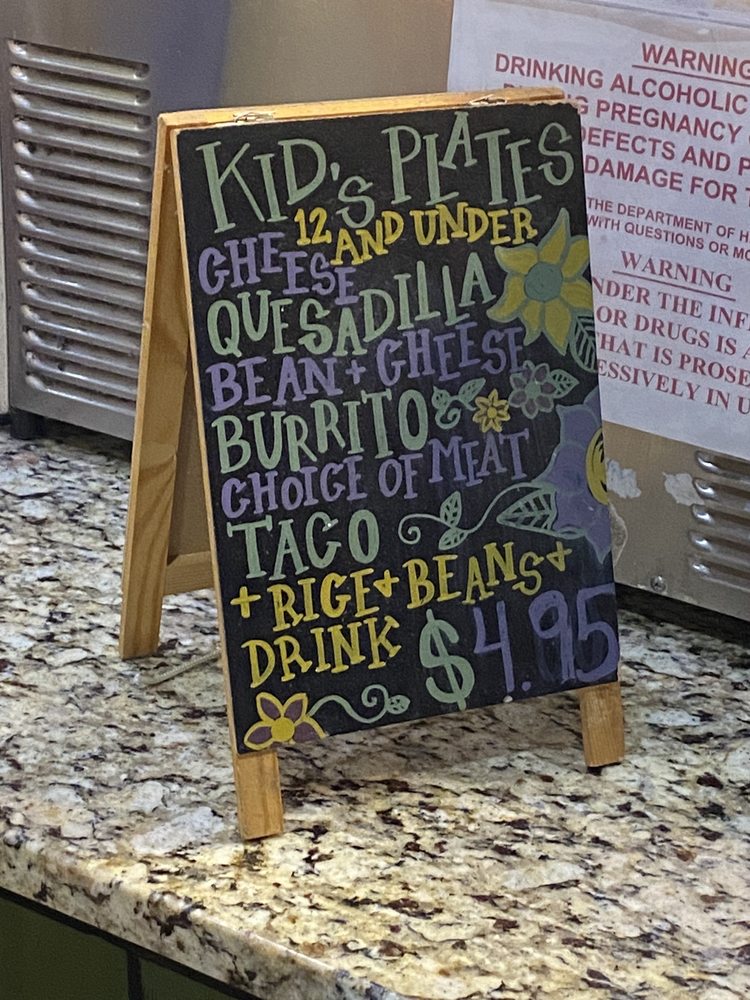 KID'S PLATES
12 AND UNDER
CHEESE
QUESADILLA
BEAN + CHEESE
BURRITO
CHOICE OF MEAT
TACO
+ RICE + BEANS +
DRINK $4.95
WARNING
DRINKING ALCOHOLIC
PREGNANCY
DEFECTS AND
DAMAGE FOR
THE DEPARTMENT OF
WITH QUESTIONS OR
WARNING
THE
OR DRUGS IS
IN